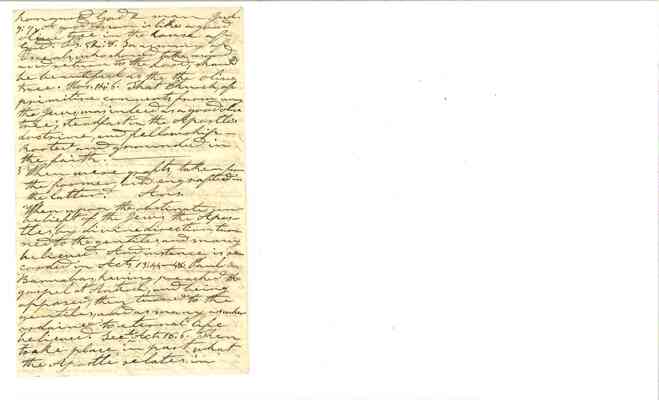 honoured God & man Jud.
9:9. A good man is like a green
olive tree in the house of
God. Ps. 52:8. In a many of
Israel, who should take words
and return to the Lord, should
be beautiful as the the olive
tree. Hos. 14:6. That Church, of
primitive converts from among
the Jews, may indeed as a good olive
tree; steadfast in the Apostles
doctrine, and fellowship—
Rooted and grounded in
the faith.
3 When were grafts taken from
the former, and engrafted in
the latter? Ans.
When upon the obstinate un-
belief of the Jews, the Apos-
tles, by divine direction, tur-
ned to the gentiles, and many
believed. An instance is re-
corded in Acts 13:44–48. Paul &
Barnabas, having preached the
gospel at Antioch, and being
opposed, they turned to the
gentiles, and as many as were
ordained to eternal life
believed. See Acts 18:6. Then
took place, in part, what
the Apostle relates in